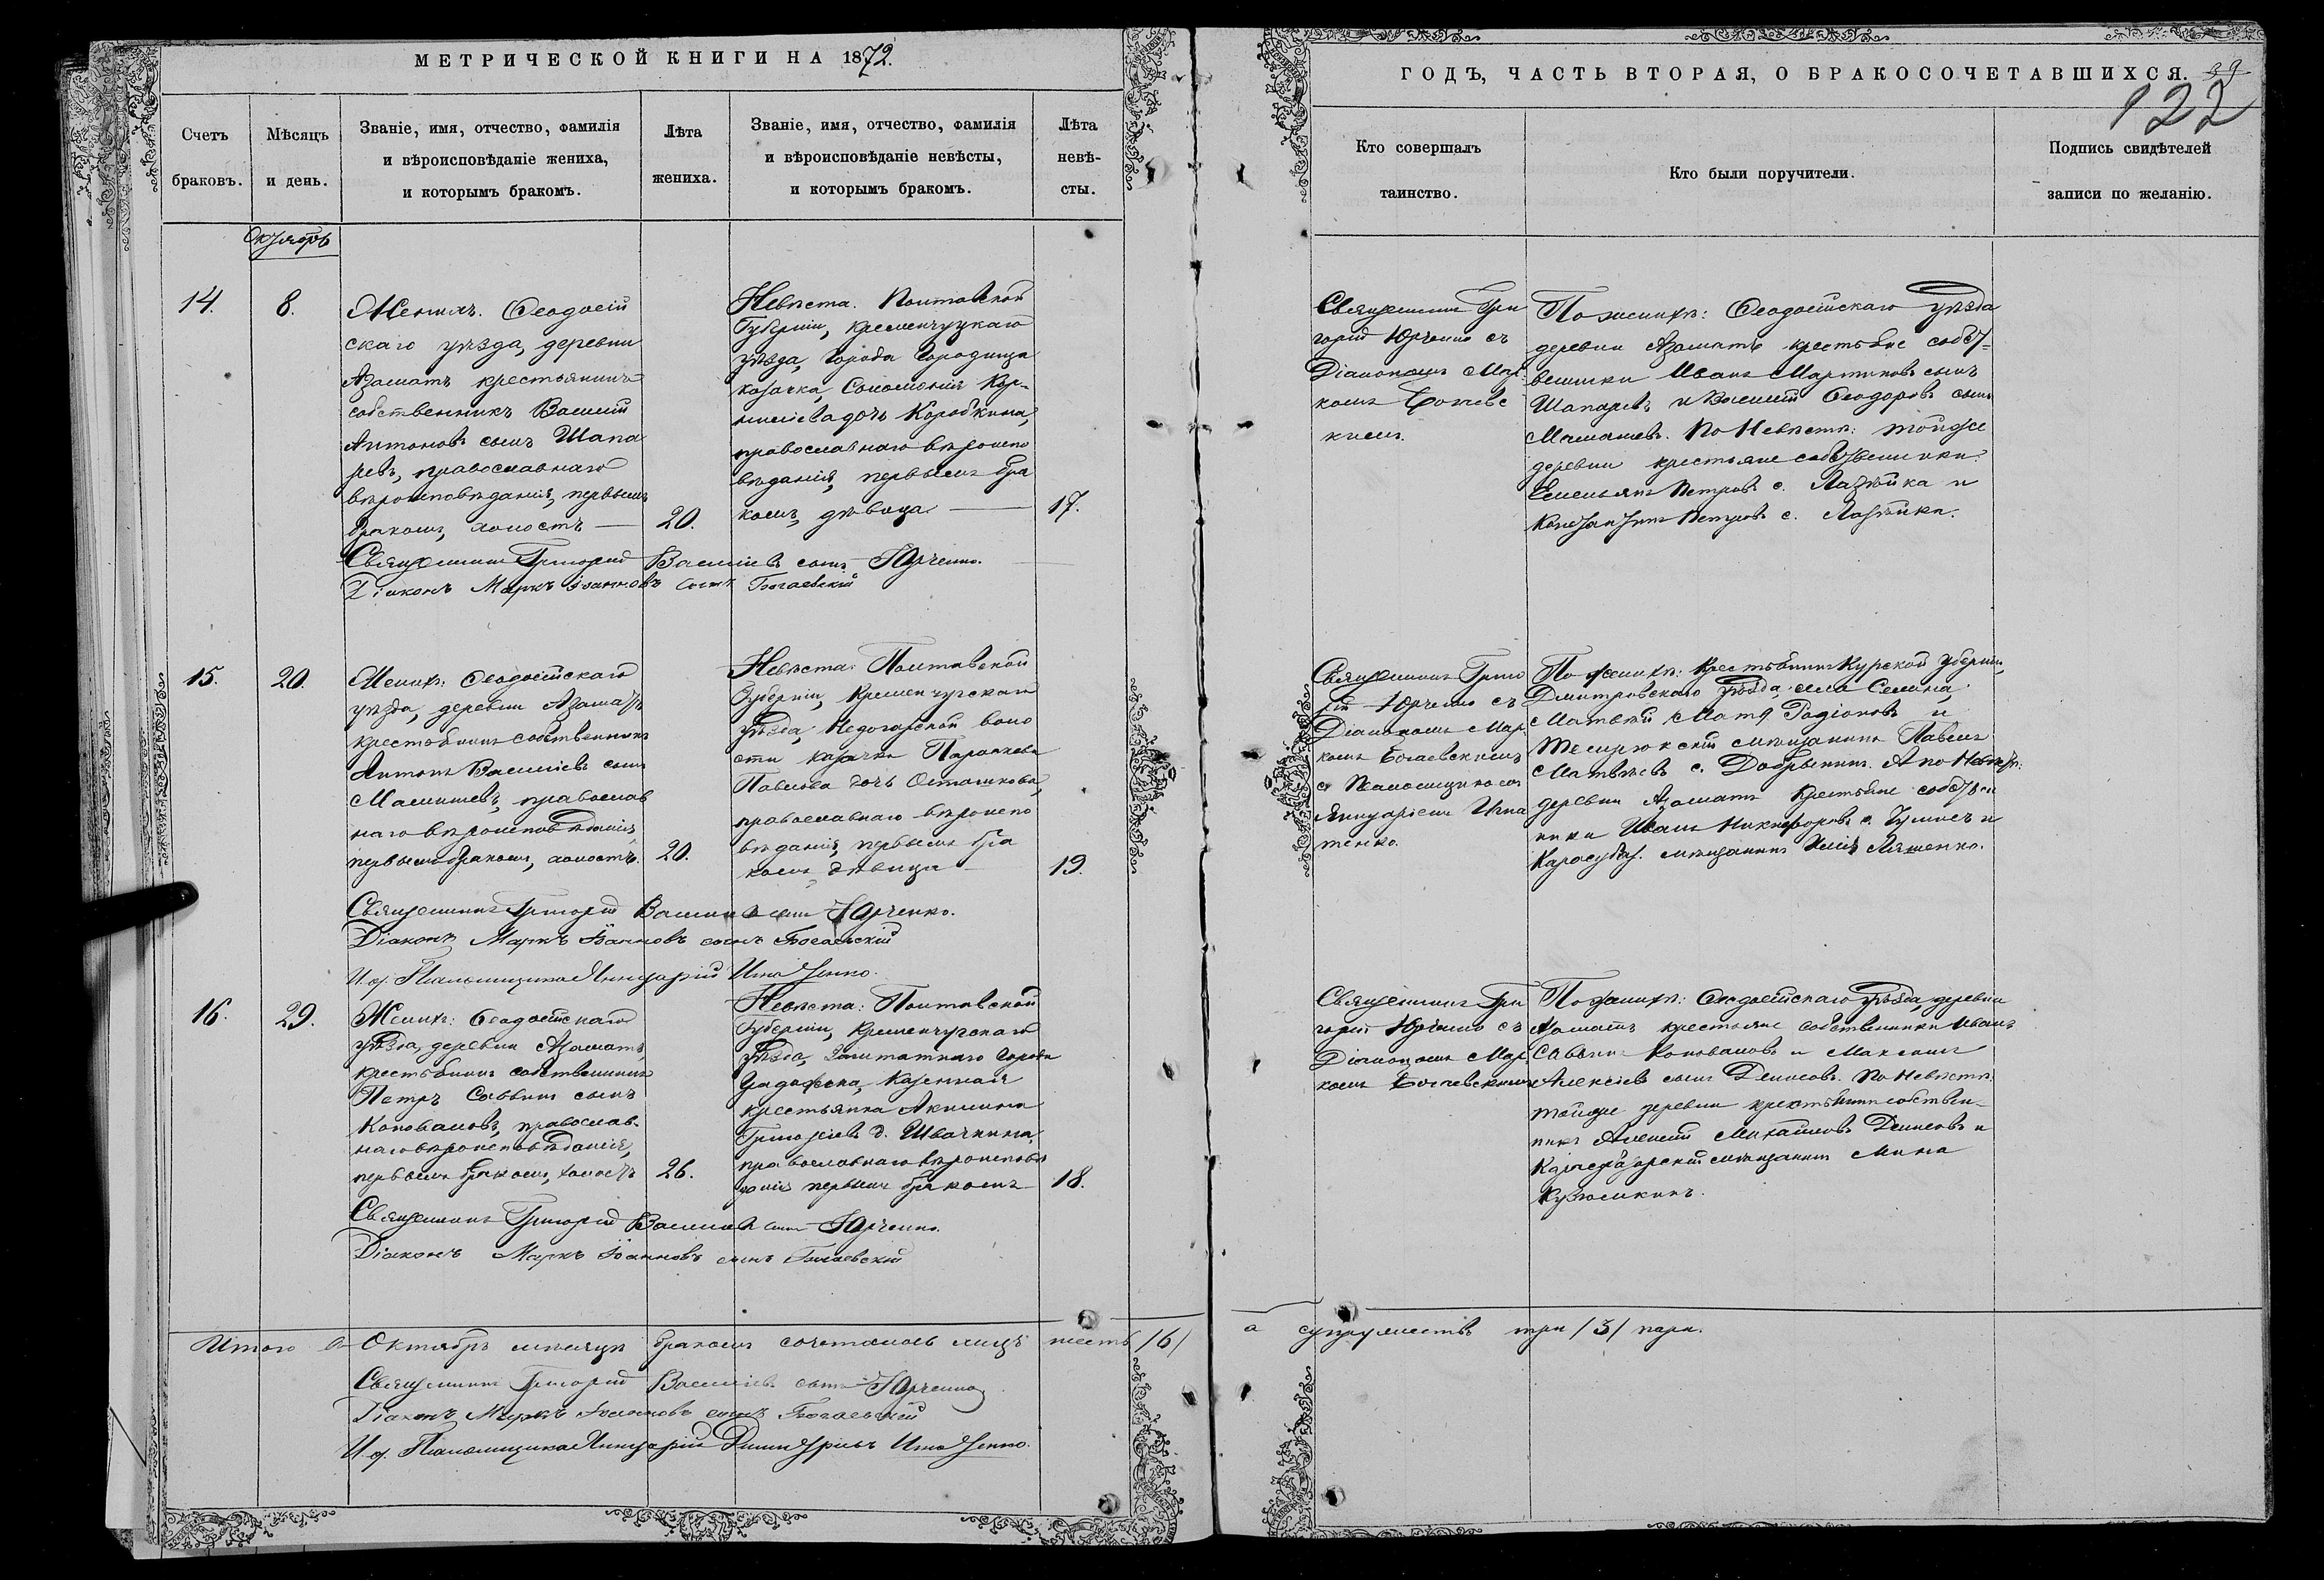 МЕТРИЧЕСКОЙ КНИГИ НА 1872.
Счетъ браковъ.
Мѣсяцъ и день.
Званіе, имя, отчество, фамилія
и вѣроисповѣданіе жениха,
и которымъ бракомъ.
Лѣта жениха.
Званіе, имя, отчество, фамилія
и вѣроисповѣданіе невѣсты,
и которымъ бракомъ.
Лѣта невѣ-
сты.
Октябрь
14.
8.
Женихъ. Ѳеодосій
скаго уѣзда, деревни
Азаматъ крестьянинъ
собственникъ Василій
Антоновъ сынъ Шапа
ревъ, православнаго
вѣроисповѣданія, первымъ
бракомъ, холостъ
20.
Невѣста. Полтавской
Губерніи, Кременчугскаго
уѣзда, города Городища
козачка, Соломонія Кор-
ниліева дочь Коробкина,
православнаго вѣроиспо
вѣданія, первымъ бра
комъ, дѣвица
17.
Священникъ Григорій Василіевъ сынъ Юрченко.
Діаконъ Маркъ Іоанновъ сынъ Богаевскій
15.
20.
Женихъ: Ѳеодосійскаго
уѣзда, деревни Азаматъ
крестьянинъ собственникъ
Антонъ Василіевъ сынъ
Мамышевъ, православ
наго вѣроисповѣданія,
первымъ бракомъ, холостъ.
20.
Невѣста: Полтавской
Губерніи, Кременчугскаго
уѣзда, Недогарской воло
сти козачка Параскева
Павлова дочь Осташкова,
православнаго вѣроиспо
вѣданія, первымъ бра
комъ, дѣвица
19.
Священникъ Григорій Василіевъ сынъ Юрченко.
Діаконъ Маркъ Іоанновъ сынъ Богаевскій
И. д. Псаломщика Іаннуарій Игнатенко.
16.
29.
Женихъ: Ѳеодосійскаго
уѣзда, деревни Азаматъ,
крестьянинъ собственникъ
Петръ Саввинъ сынъ
Коноваловъ, православ-
наго вѣроисповѣданія,
первымъ бракомъ, холостъ
26.
Невѣста: Полтавской
Губерніи, Кременчугскаго
уѣзда, Заштатнаго города
Градижска, Казенная
крестьянка Акилина
Григоріева д. Швачкина,
православнаго вѣроисповѣ
данія первымъ бракомъ
18.
Священникъ Григорій Василіевъ сынъ Юрченко.
Діаконъ Маркъ Іоанновъ сынъ Богаевскій
Итого въ Октябрѣ мѣсяцѣ бракомъ сочеталось лицъ шесть /6/
Священникъ Григорій Василіевъ сынъ Юрченко
Діаконъ Маркъ Іоанновъ сынъ Богаевскій
И. д. Псаломщика Іаннуарій Димитріевъ Игнатенко.
ГОДЪ, ЧАСТЬ ВТОРАЯ, О БРАКОСОЧЕТАВШИХСЯ. 39
122
Кто совершалъ
таинство.
Кто были поручители.
Подпись свидѣтелей
записи по желанію.
Священникъ Гри
горій Юрченко съ
Діакономъ Мар
комъ Богаевс
кимъ.
По женихѣ: Ѳеодосійскаго уѣзда
деревни Азаматъ крестьяне собст-
венники Иванъ Мартиновъ сынъ
Шапаревъ и Василій Ѳеодоровъ сынъ
Мамышевъ. По Невѣстѣ: тойже
деревни крестьяне собственники
Емельянъ Петровъ с. и
Константинъ Петровъ с.
Священникъ Григо
рій Юрченко съ
Діакономъ Мар
комъ Богаевскимъ
с Псаломщикомъ
Іаннуаріемъ Игна
тенко.
По женихѣ: Крестьянинъ Курской Губерніи,
Дмитровскаго уѣзда, села Селина,
Матвей Родіоновъ и
Темрюкскій мѣщанинъ Павелъ
Матвѣевъ с. Добрынинъ. А по Невѣстѣ:
деревни Азаматъ крестьяне собствен
ники Иванъ Никифоровъ с. и
Карасубаз. мѣщанинъ Илія Ляшенко.
Священникъ Гри
горій Юрченко съ
Діакономъ Мар
комъ Богаевскимъ
По женихѣ: Ѳеодосійскаго уѣзда, деревни
Азаматъ крестьяне собственники Иванъ
Саввинъ Коноваловъ и Максимъ
Алексѣевъ сынъ Денисовъ. По Невѣстѣ:
тойже деревни крестьянинъ собствен-
никъ Алексій Михайловъ Денисовъ и
Карасубазарскій мѣщанинъ Мина
Кузюмкинъ.
а супружествъ три /3/ пары.